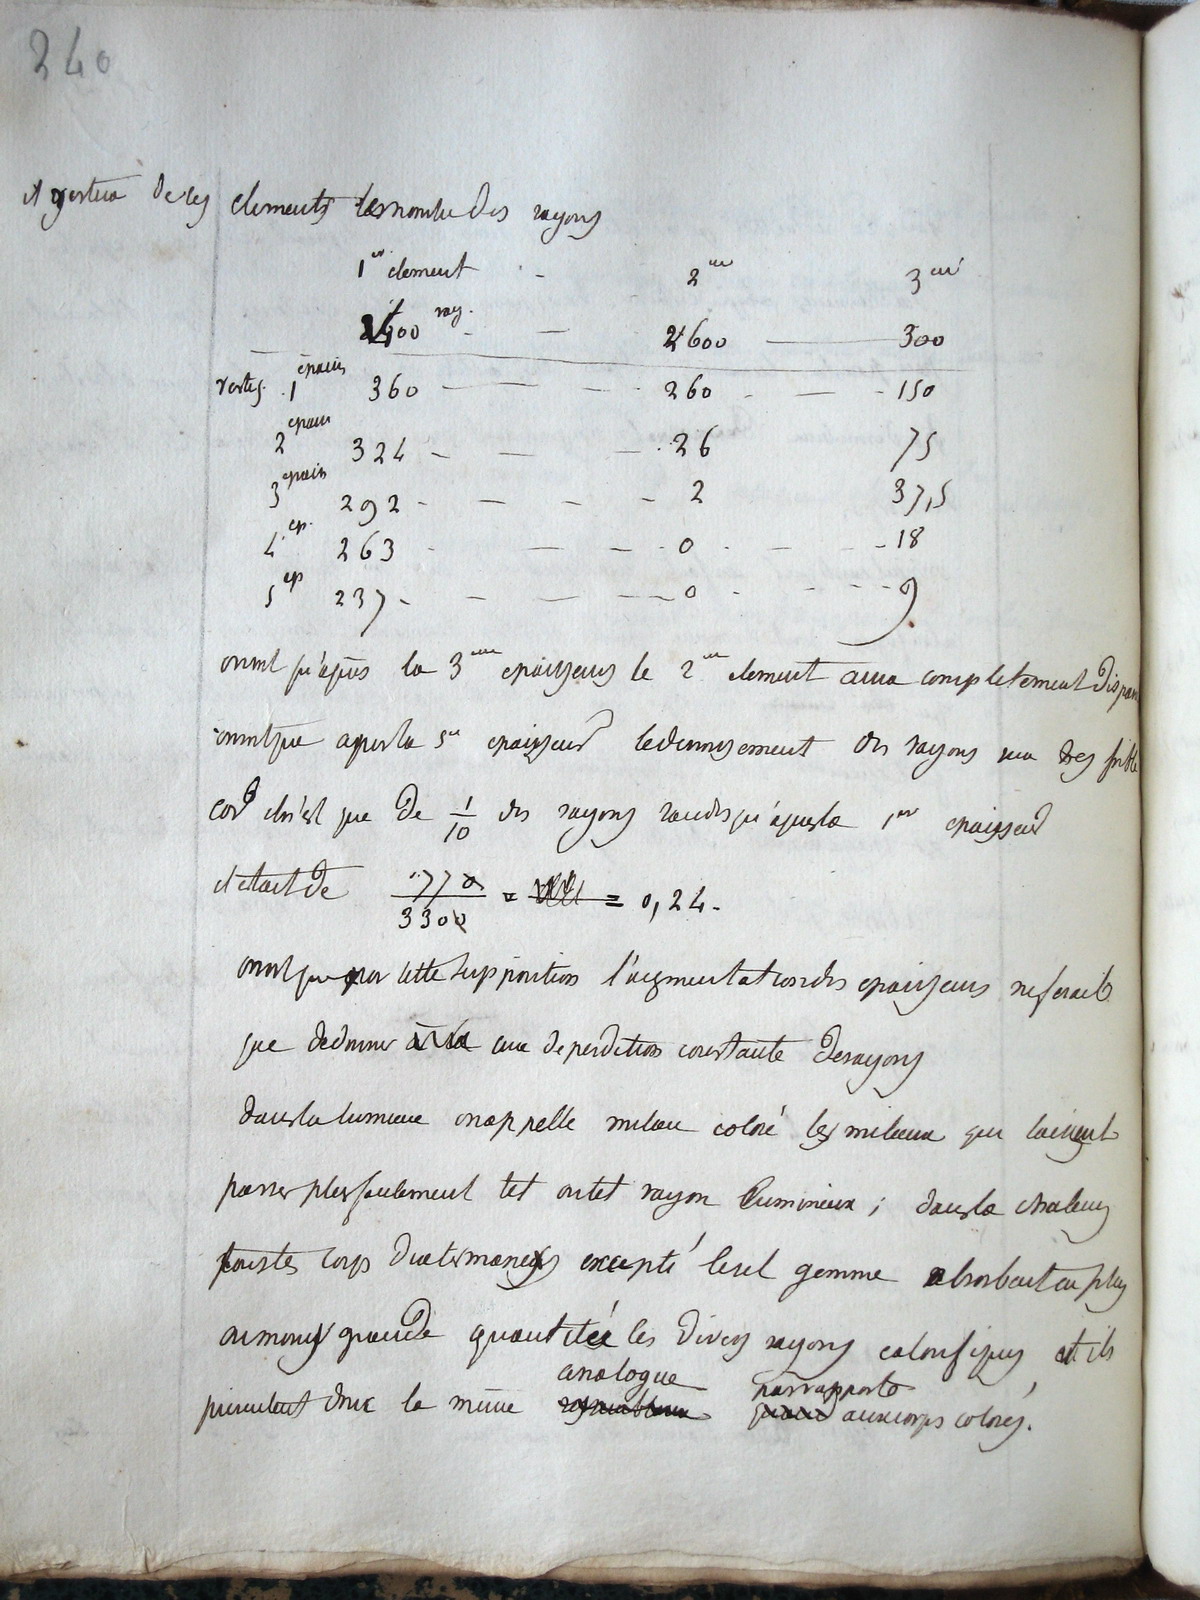 240
il restera de ces elements les nombre des rayons
1er element - 2eme 3eme
400 ray. - - 2600 - 300
restes. 1 epaiss 360 - - - 260 - - - 150
2 epaiss 324 - - - 26 75
3 epaiss 292 - - - - 2 37,5
4 ep. 263 - - - 0 - - - 18
5 ep 237 - - - - 0 - - - 9
on voit qu'après la 3eme epaisseurs le 2eme element aura completement disparu
on voit que apres la 5me epaisseur le des rayons sera tres faible
car il n'est que de 1/10 des rayons tandis qu'apres la 1ere epaisseur
il etait de 770/3300 = = 0,24.
on voit que par cette supposition l'augmentation des epaisseurs ne ferait
que de donner une deperdition constante de rayons
dans la lumiere on appelle milieu coloré les milieux qui laissent
passer plus facilement tel ou tel rayon lumineux ; dans la chaleur
tous les corps diatermanes excepté le sel gemme absorbent en plus
ou moins grande quantité les divers rayons calorifiques et ils
analogue par rapporte
presentent donc le même aux corps colorés.